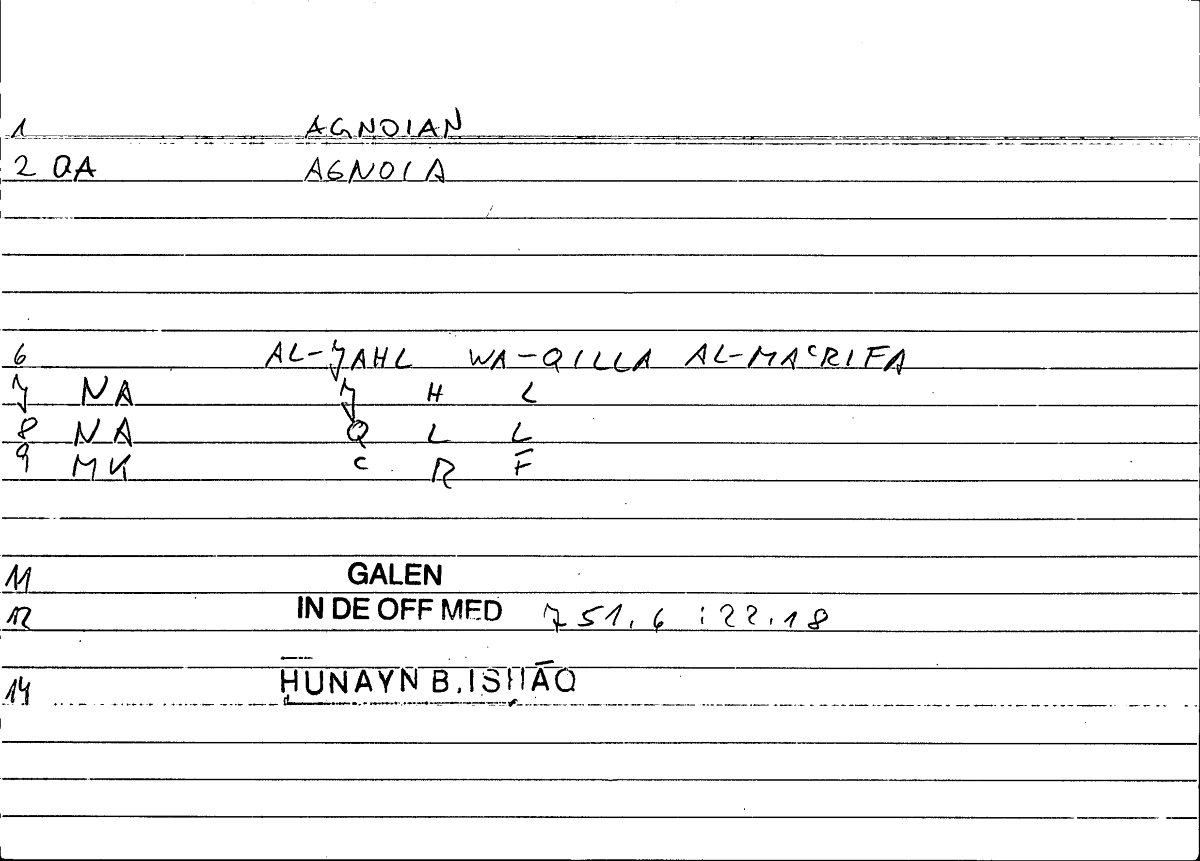 1 AGNOIAN
2 QA AGNOIA
6 AL-JAHL WA-QILLA AL-MAᶜRIFA
7 NA J H L
8 NA Q L L
9 MK ᶜ R F
11 GALEN
12 IN DE OFF MED 751.6 : 22.18
14 HUNAYN B. ISḤĀQ